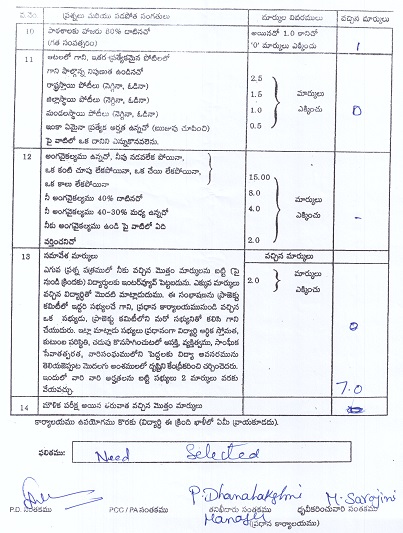 వ.నెం. ప్రశ్నలు మరియు సదపోత సంగతులు మార్కుల వివరములు వచ్చిన మార్కులు
10 పాఠశాలకు హాజరు 80% దాటినచో అయినచో 1.0 కానిచో
(గత సంవత్సరం) '0' మార్కులు ఎక్కించు 1
11 ఆటలలో గాని, ఇతర ప్రత్యేకమైన పోటీలలో
గాని పాల్గొన్న నిపుణుత ఉండినచో 2.5
రాష్ట్రస్థాయి పోటీలు (నెగ్గినా, ఓడినా) మార్కులు
జిల్లాస్థాయి పోటీలు (నెగ్గినా, ఓడినా) 1.5 ఎక్కించు 0
మండలస్థాయి పోటీలు (నెగ్గినా, ఓడినా) 1.0
ఇంకా ఏమైనా ప్రత్యేక అర్హత ఉన్నచో (ఋజువు చూపించి) 0.5
పై వాటిలో ఒక దానిని ఎన్నుకొనవలెను.
12 అంగవైకల్యము ఉన్నచో, నీవు నడవలేక పోయినా,
ఒక కంటి చూపు లేకపోయినా, ఒక చేయి లేకపోయినా, 15.00
ఒక కాలు లేకపోయినా 8.0
నీ అంగవైకల్యము 40% దాటినచో మార్కులు
నీ అంగవైకల్యము 40-30% మధ్య ఉన్నచో 4.0 ఎక్కించు
నీకు అంగవైకల్యము ఉండి పై వాటిలో ఏది –
వర్తించనిచో 2.0
13 సమావేశ మార్కులు వచ్చిన మార్కులు
ఎగువ ప్రశ్న పత్రములో నీకు వచ్చిన మొత్తం మార్కులను బట్టి (పై 2.0 మార్కులు
నుండి క్రిందకు) విద్యార్థులకు ఇంటర్వ్యూకి పెట్టబడును. ఎక్కువ మార్కులు ఎక్కించు
వచ్చిన విద్యార్థితో మొదటి మాట్లాడుదుము. ఈ సంభాషణను ప్రాజెక్టు
కమిటీలో ఇద్దరి సభ్యులచే గాని, ప్రధాన కార్యాలయమునుండి వచ్చిన
ఒక సభ్యుడు, ప్రాజెక్టు కమిటీలోని మరో సభ్యునితో కలిసి గాని 0
చేయుదురు. ఇట్లా మాట్లాడు సభ్యులు ప్రధానంగా విద్యార్థి ఆర్థిక స్తోమత,
కుటుంబ పరిస్థితి, చదువు కొనసాగించుటలో ఆసక్తి, వ్యక్తిత్వము, సాంఘిక
ఇందులో వారి వారి అర్హతలను బట్టి సభ్యులు 2 మార్కులు వరకు
వేయవచ్చు. 7.0
14 మౌళిక పరీక్ష అయిన తరువాత వచ్చిన మొత్తం మార్కులు
కార్యాలయము ఉపయోగము కొరకు (విద్యార్థి ఈ క్రింది ఖాళీలో ఏమీ వ్రాయకూడదు).
ఫలితము: Need Selected
P. Dhanalakshmi M. Sarojini
P.D. సంతకము PCC / PA సంతకము తనిఖీదారు సంతకము ధృవీకరించువారి సంతకము
Manager (ప్రధాన కార్యాలయం)